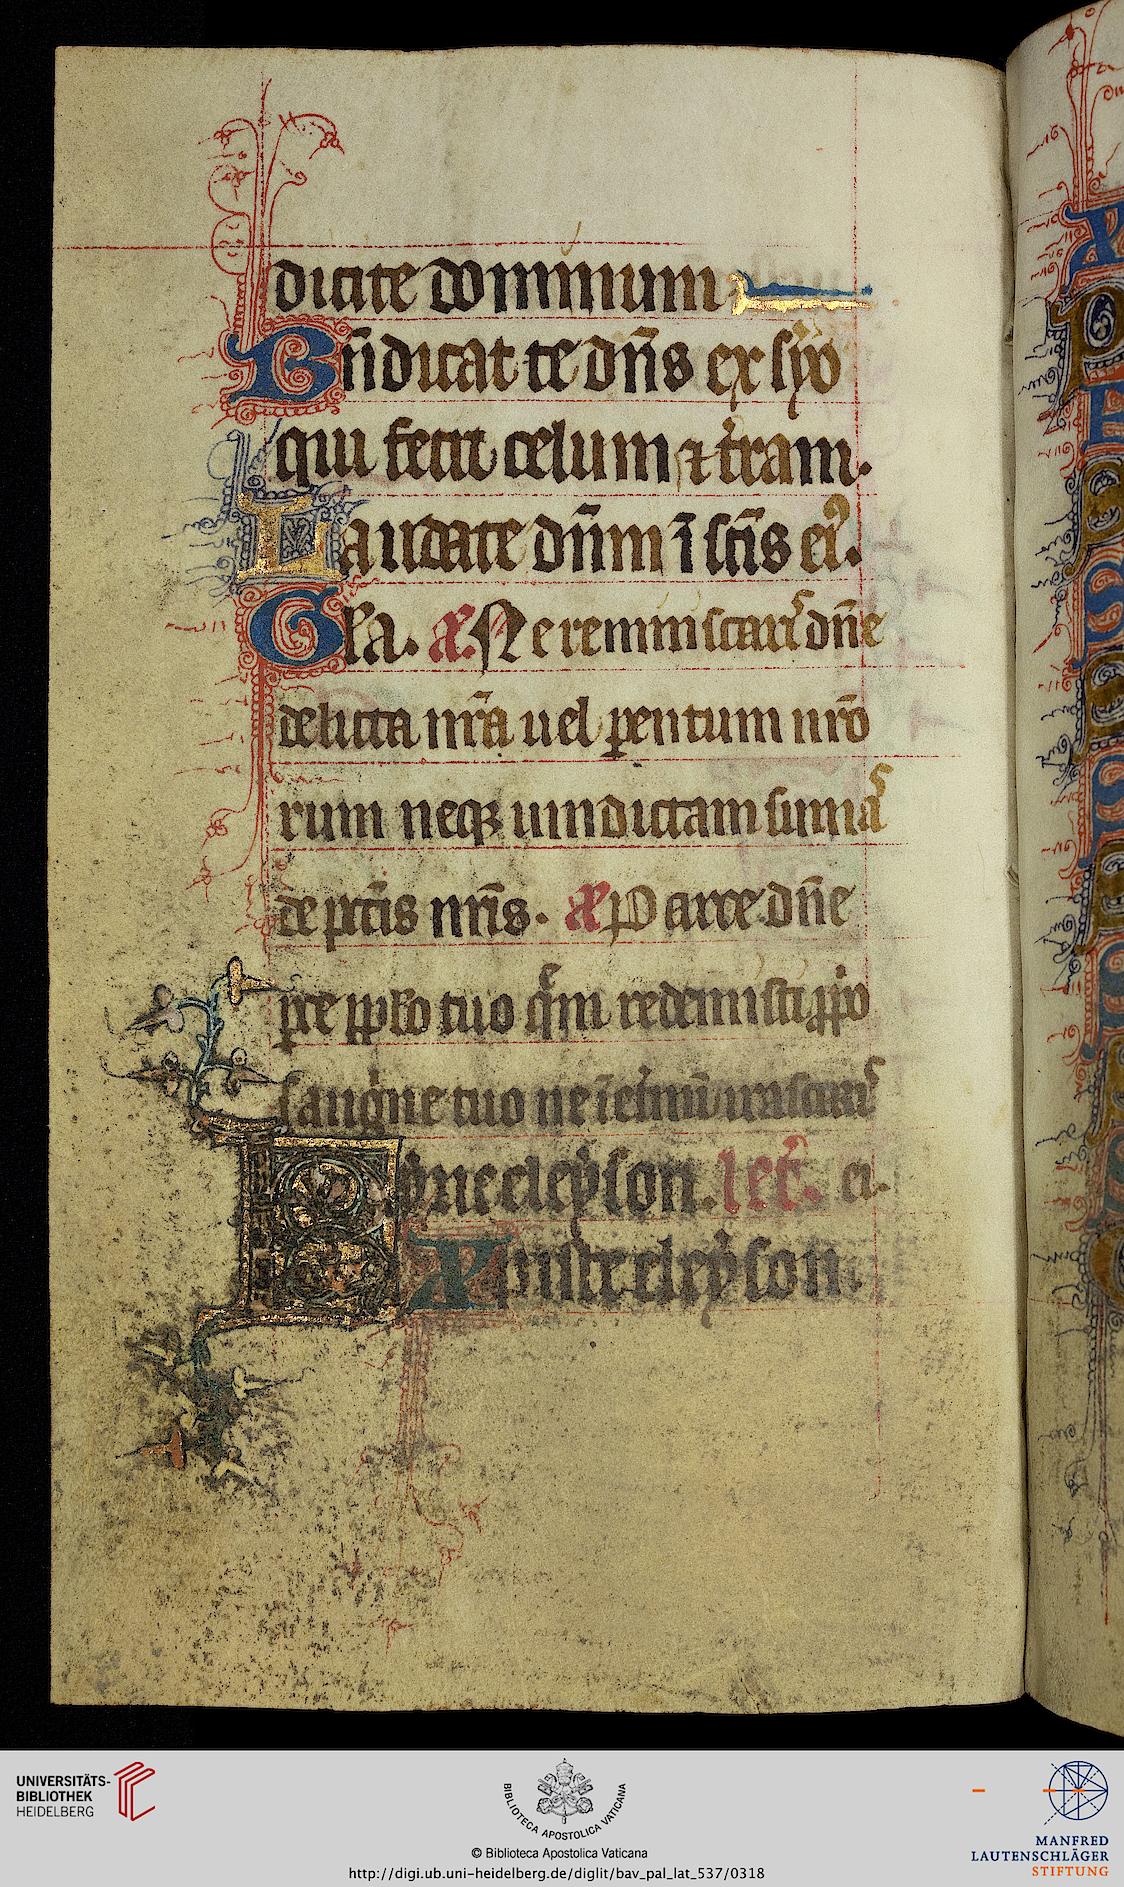 dicite dominum
Bn̄dicat te dn̄s ex syo
qui fecit celum ⁊ t̓ram.
Laudate dn̄m ī sc̄is eiꝰ.
Gl̄a. Ne reminiscar̄ dn̄e
delicta nr̄a uel ꝑentum nr̄o
rum neqꝫ uindictam sumas
de pcc̄is nr̄is. Parce dn̄e
ꝑce pplo tuo qm̄ redemisti p̄po
sangͥne tuo ne īet̓nū irascar̄
kyrieeleyson. let̄. ei.
Xpisteeleyson.
UNIVERSITÄTS-
BIBLIOTHEK
HEIDELBERG
BIBLIOTECA APOSTOLICA VATICANA
© Biblioteca Apostolica Vaticana
http://digi.ub.uni-heidelberg.de/diglit/bav_pal_lat_537/0318
MANFRED
LAUTENSCHLÄGER
STIFTUNG